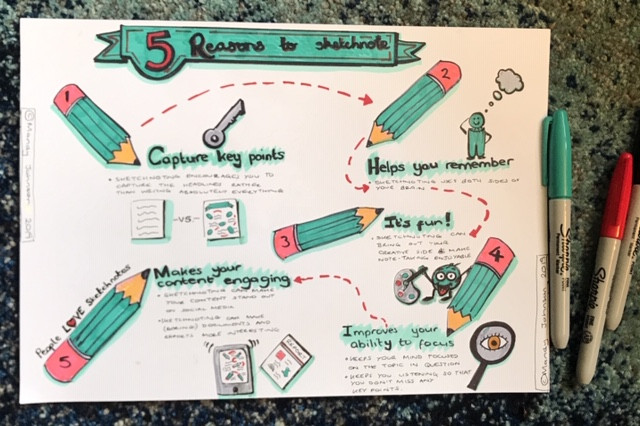 5 Reasons to sketchnote
1
Capture key points
• SKETCHNOTING ENCOURAGES YOU TO
CAPTURE THE HEADLINES RATHER
THAN WRITING ABSOLUTELY EVERYTHING
-VS-
2
Helps you remember
• SKETCHNOTING USES BOTH SIDES OF
YOUR BRAIN
3
It's fun!
• SKETCHNOTING CAN
BRING OUT YOUR
CREATIVE SIDE & MAKE
NOTE-TAKING ENJOYABLE
4
Improves your
ability to focus
• KEEPS YOUR MIND FOCUSED
ON THE TOPIC IN QUESTION
• KEEPS YOU LISTENING SO THAT
YOU DON'T MISS ANY
KEY POINTS.
5
People LOVE sketchnotes
Makes your
content engaging
• SKETCHNOTING CAN MAKE
YOUR CONTENT STAND OUT
ON SOCIAL MEDIA
• SKETCHNOTING CAN MAKE
(BORING) DOCUMENTS AND
REPORTS MORE INTERESTING
REPORT
© Mandy
© Mandy
Sharpie
Sharpie